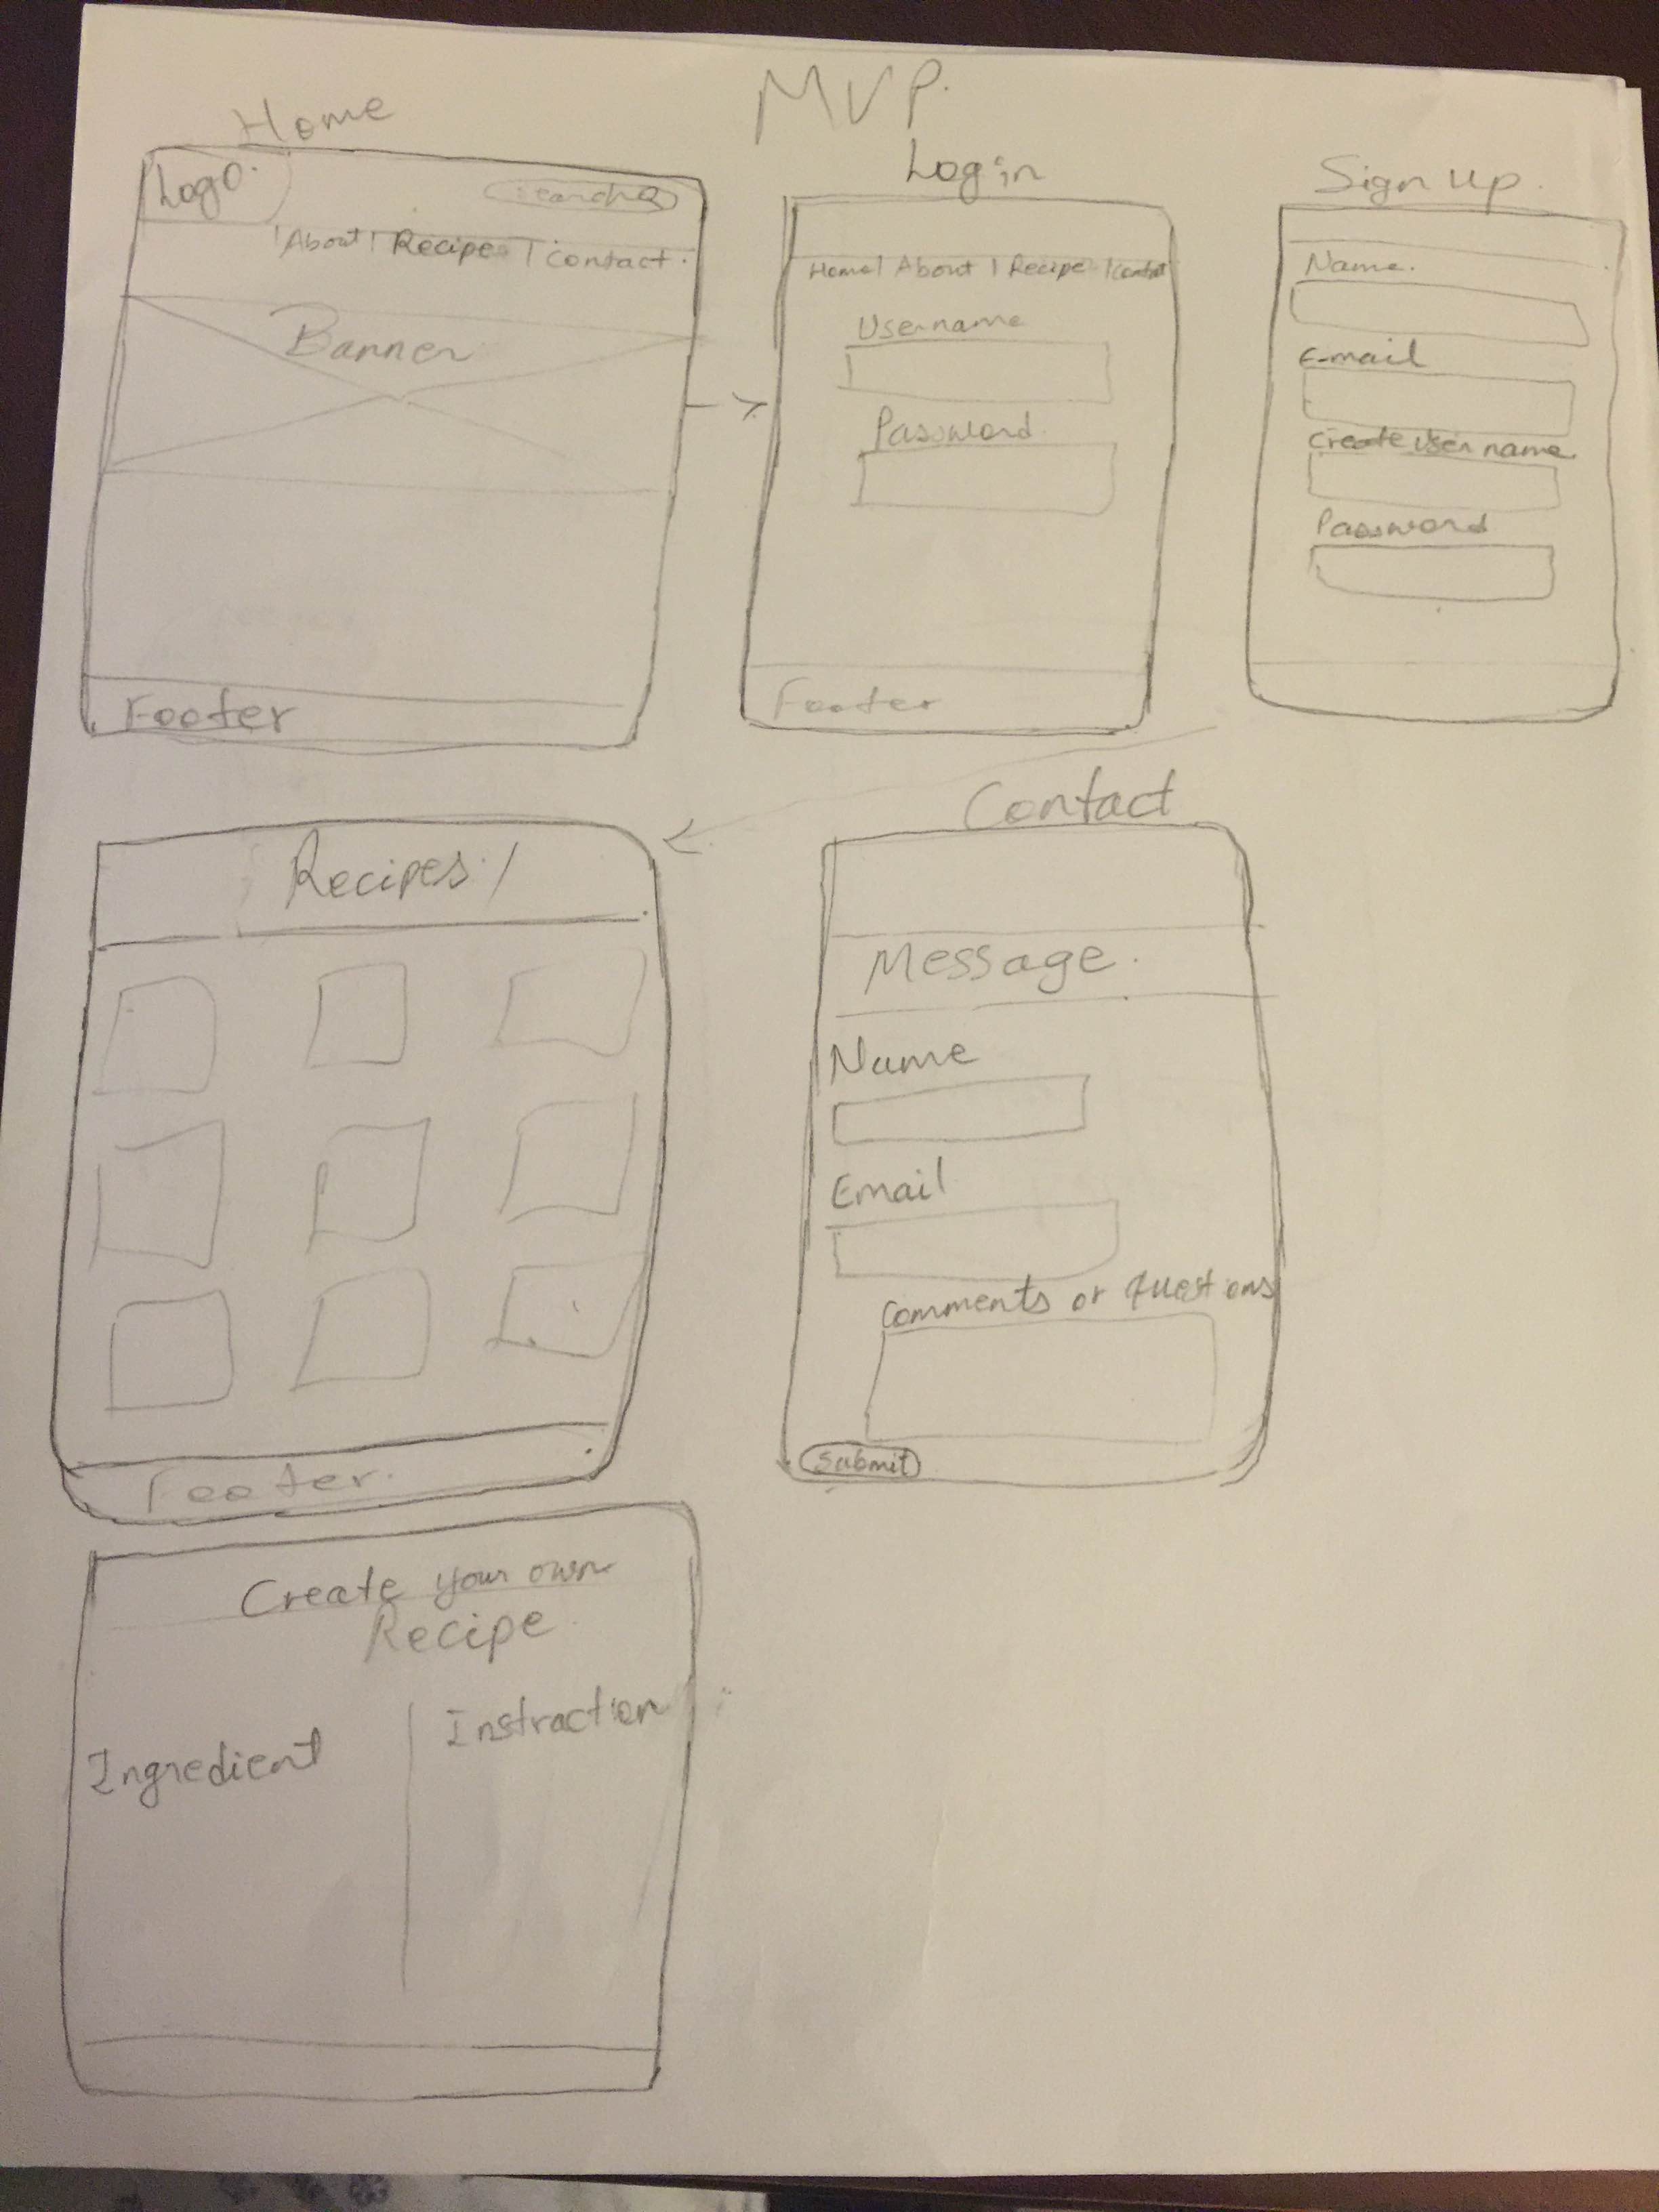 MVP.
Home
Logo.
Search
|About| Recipes | Contact.
Banner
Footer
Log in
Home| About | Recipe |Contact
Username
Password
Footer
Sign up.
Name.
E-mail
Create user name
Password
Recipes /
Footer.
Contact
Message.
Name
Email
Comments or questions
Submit
Create your own
Recipe
Ingredient
Instraction